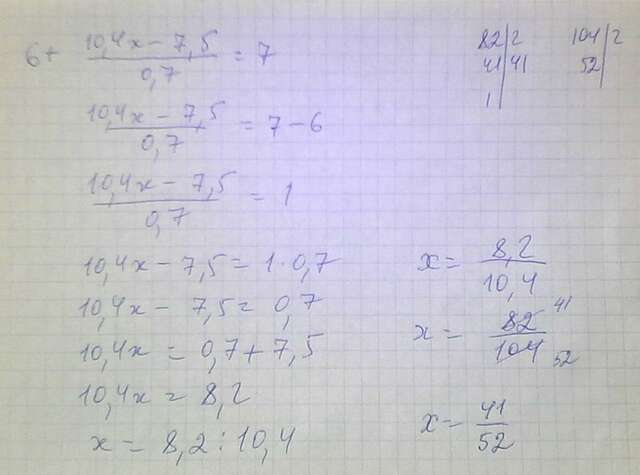 6 + (10,4x − 7,5)/0,7 = 7
(10,4x − 7,5)/0,7 = 7 − 6
(10,4x − 7,5)/0,7 = 1
10,4x − 7,5 = 1 · 0,7
10,4x − 7,5 = 0,7
10,4x = 0,7 + 7,5
10,4x = 8,2
x = 8,2 : 10,4
82 | 2
41 | 41
1 |
104 | 2
52 |
x = 8,2/10,4
x = 82/104 41 52
x = 41/52